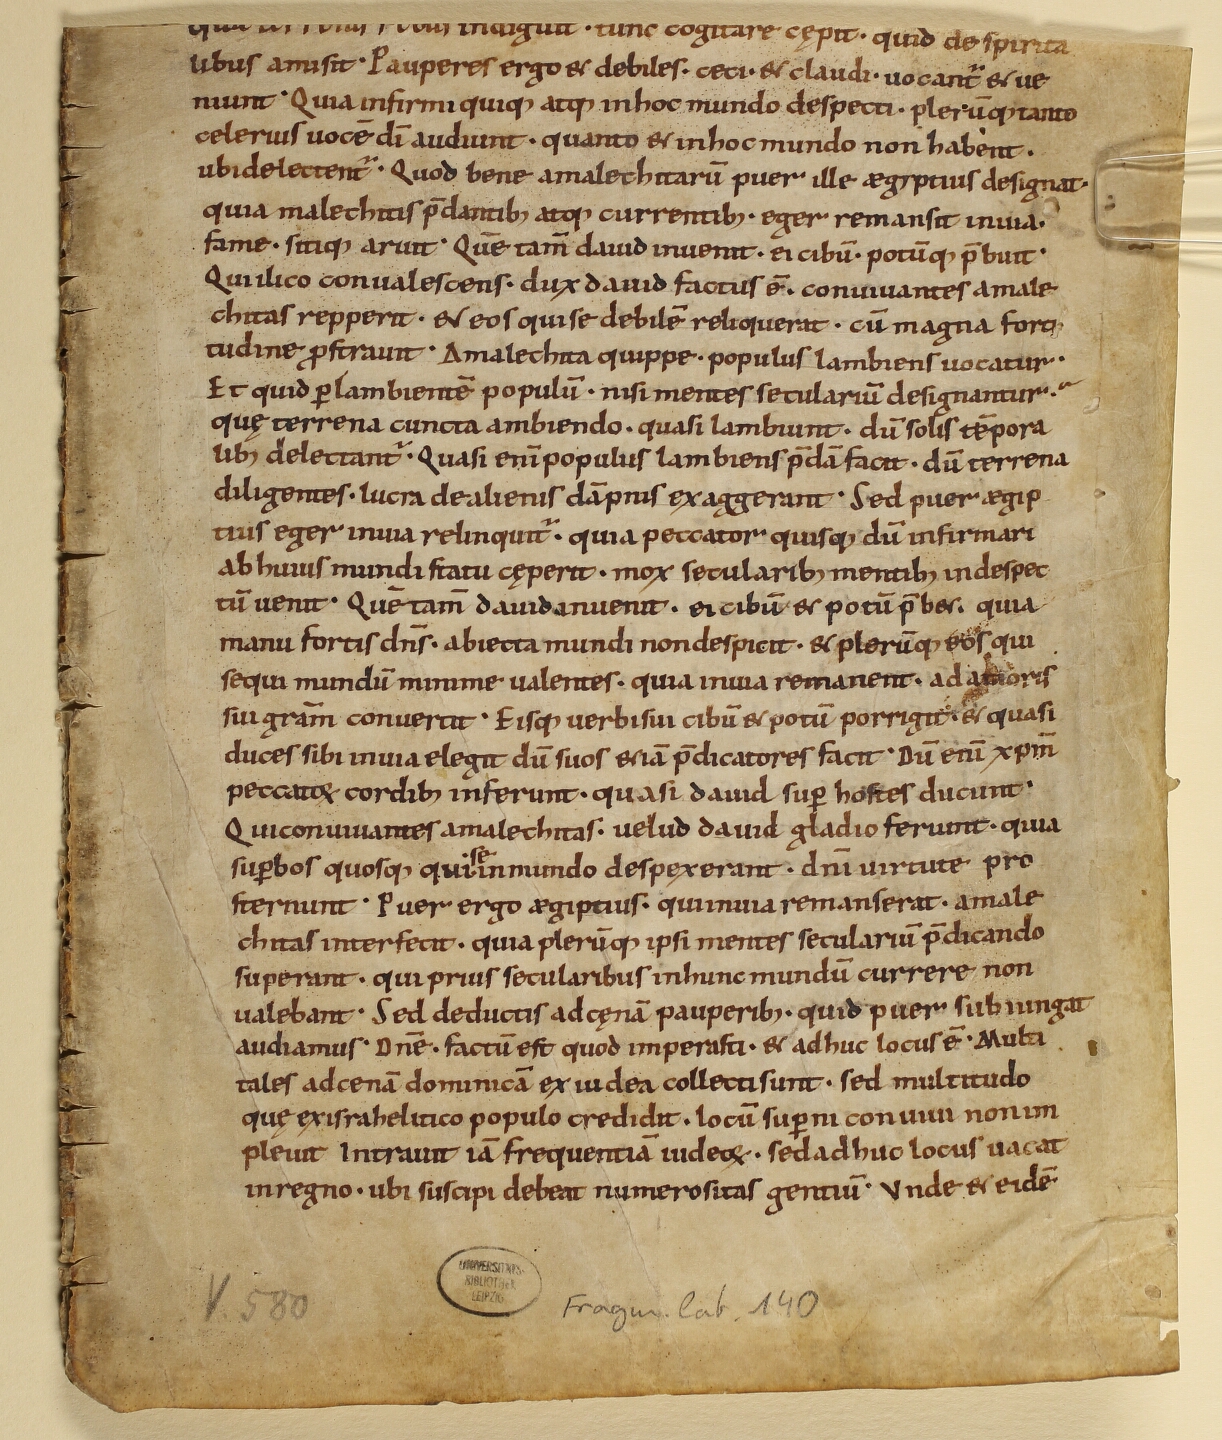 indiguit · tunc cogitare cępit · quid de spirita
libus amisit · Pauperes ergo & debiles · ceci · & claudi · uocant᷑ & ue
niunt · Quia infirmi quiq; atq; inhoc mundo despecti · plerūq; tanto
celerius uocē dī audiunt · quanto & inhoc mundo non habent ·
ubi delectent᷑ · Quod bene amalechitarū puer ille ægyptius designat ·
quia malechitis p̄dantib; atq; currentib; · eger remansit inuia ·
fame · sitiq; aruit · Quē tam̄ dauid inuenit · ei cibū · potūq; p̄buit ·
Qui ilico conualescens · dux dauid factus ē · conuiuantes amale
chitas repperit · & eos qui se debilē reliquerat · cū magna forti
tudine ꝓstrauit · Amalechita quippe · populus lambiens uocatur ·
Et quid ꝑ lambientē populū · nisi mentes seculariū designantur ·
quę terrena cuncta ambiendo · quasi lambiunt · dū solis tēpora
lib; delectant᷑ · Quasi enī populus lambiens p̄dā facit · dū terrena
diligentes · lucra de alienis dāpnis exaggerant · Sed puer ægip
tius eger inuia relinquit᷑ · quia peccator quisq; dū infirmari
ab huius mundi statu cęperit · mox secularib; mentib; indespec
tū uenit · Quē tam̄ dauid inuenit · ei cibū & potū p̄b& · quia
manu fortis dn̄s · abiecta mundi non despicit · & plerūq; eos qui
sequi mundū minime ualentes · quia inuia remanent · ad amoris
sui gram̄ conuertit · Eisq; uerbi sui cibū & potū porrigit · & quasi
duces sibi inuia elegit dū suos &iā p̄dicatores facit · Dū enī xp̄m
peccatoꝝ cordib; inferunt · quasi dauid suꝑ hostes ducunt ·
Qui conuiuantes amalechitas · uelud dauid gladio feriunt · quia
suꝑbos quosq; qui se inmundo despexerant · dn̄i uirtute pro
sternunt · Puer ergo ægiptius · qui inuia remanserat · amale
chitas interfecit · quia plerūq; ipsi mentes seculariū p̄dicando
superant · qui prius secularibus inhunc mundū currere non
ualebant · Sed deductis ad cęnā pauperib; · quid puer subiungat
audiamus · Dn̄e · factū est quod imperasti · & adhuc locus ē · Multi
tales ad cenā dominicā ex iudea collecti sunt · sed multitudo
quę ex israhelitico populo credidit · locū suꝑni conuiuii non im
pleuit Intrauit iā frequentiā iudeoꝝ · sed adhuc locus uacat
in regno · ubi suscipi debeat numerositas gentiū · Vnde & eidē
UNIVERSITÄTS-
BIBLIOTHEK
LEIPZIG
V. 580
Fragm. lat. 140